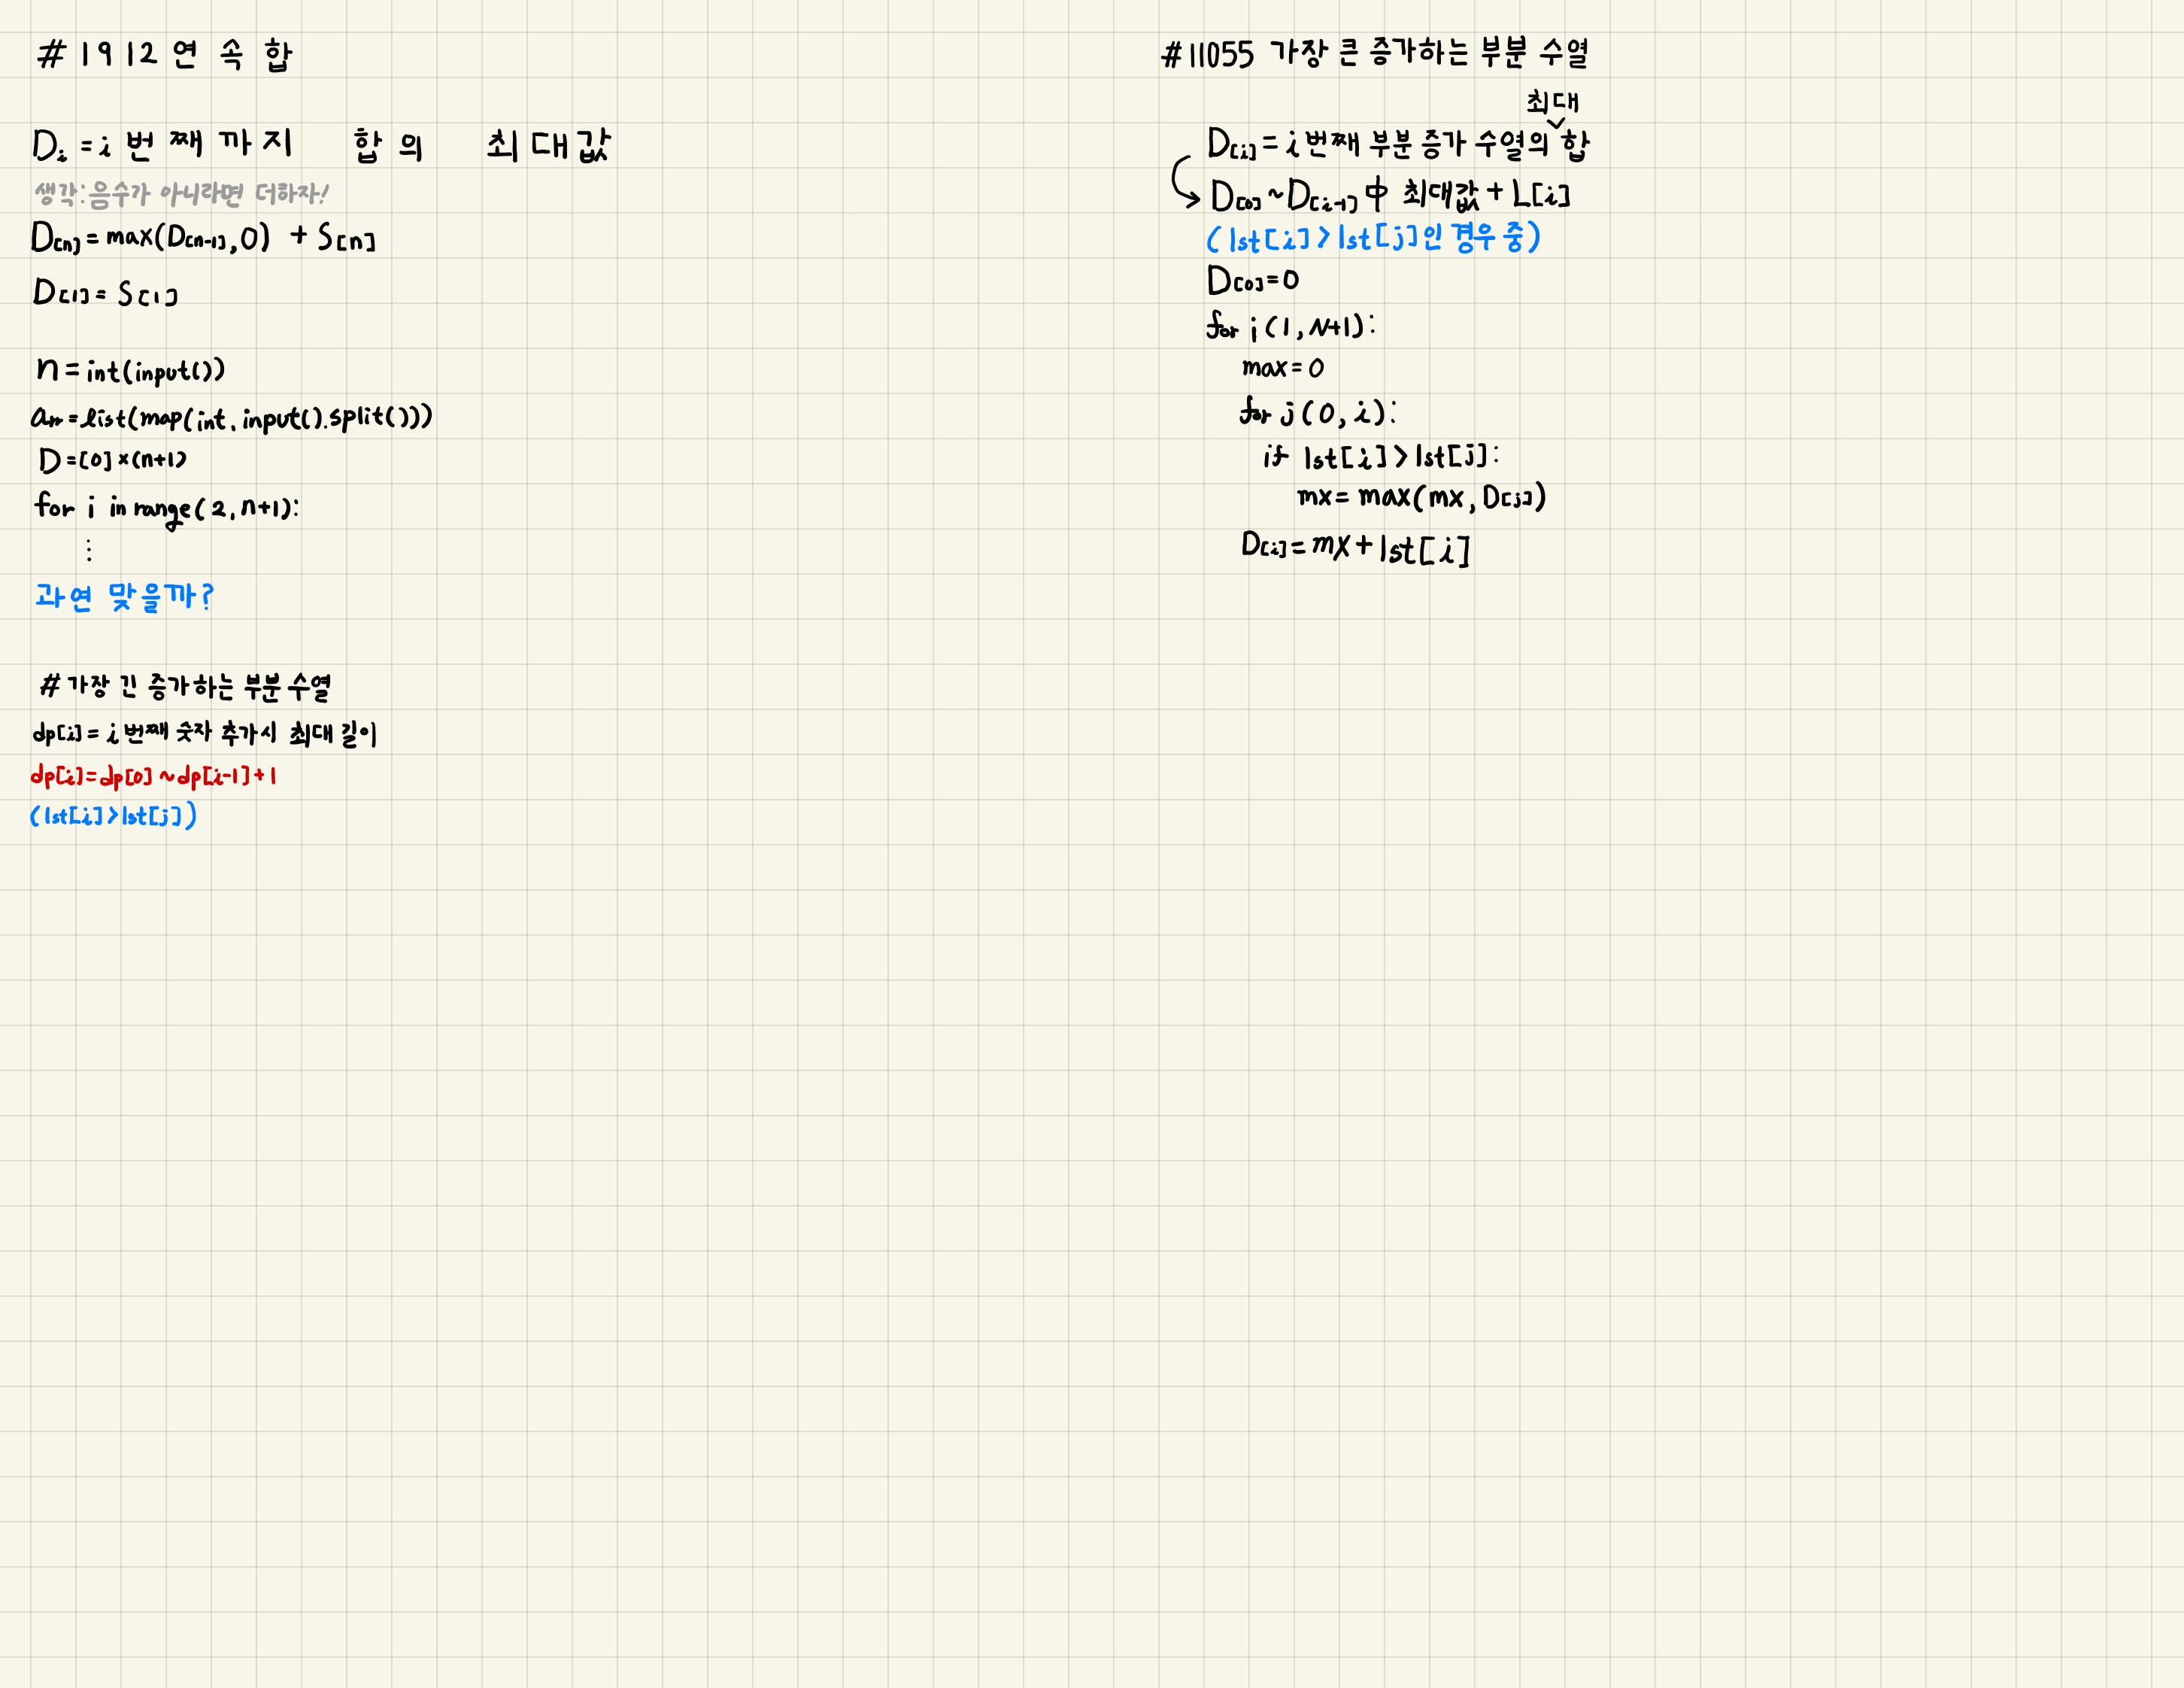 # 1912 연속합
Di = i번째까지 합의 최대값
생각:음수가 아니라면 더하자!
D[n] = max(D[n-1], 0) + S[n]
D[1] = S[1]
n = int(input())
arr = list(map(int, input().split()))
D = [0] × (n+1)
for i in range(2, n+1):
⋮
과연 맞을까?
# 가장 긴 증가하는 부분 수열
dp[i] = i번째 숫자 추가시 최대 길이
dp[i] = dp[0] ~ dp[i-1] + 1
(lst[i] > lst[j])
# 11055 가장 큰 증가하는 부분 수열
최대
D[i] = i번째 부분 증가 수열의 합
D[0] ~ D[i-1] 中 최대값 + L[i]
(lst[i] > lst[j]인 경우 중)
D[0] = 0
for i (1, N+1):
max = 0
for j (0, i):
if lst[i] > lst[j]:
mx = max(mx, D[j])
D[i] = mx + lst[i]